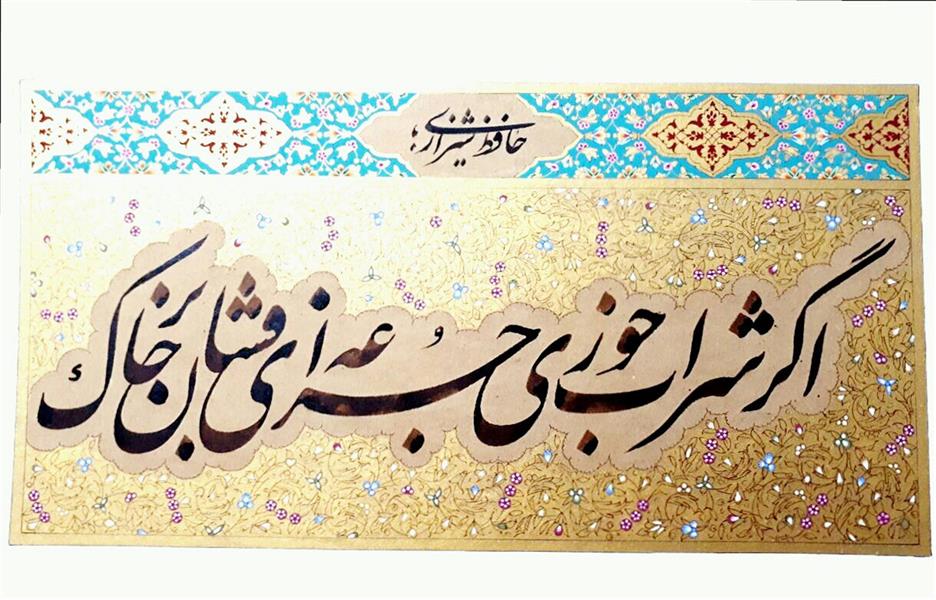 حافظ شیرازی؛
اگر شراب خوری جُرعه ای فشان بر خاک